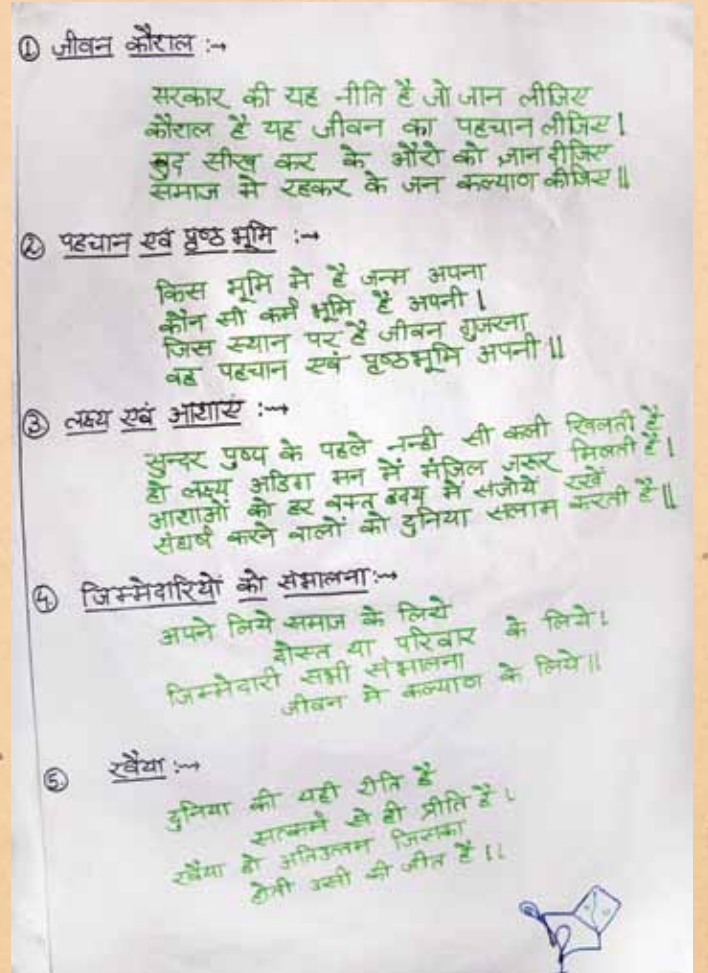 ① जीवन कौशल :→
सरकार की यह नीति है जो जान लीजिए
कौशल है यह जीवन का पहचान लीजिए।
खुद सीख कर के औरो को ज्ञान दीजिए
समाज मे रहकर के जन कल्याण कीजिए॥
② पहचान एवं पृष्ठ भूमि :→
किस भूमि मे है जन्म अपना
कौन सी कर्म भूमि है अपनी।
जिस स्थान पर है जीवन गुजरना
वह पहचान एवं पृष्ठभूमि अपनी॥
③ लक्ष्य एवं आशाएं :→
सुन्दर पुष्प के पहले नन्ही सी कली खिलती है
हो लक्ष्य अडिग मन में मंजिल जरूर मिलती है।
आशाओं को हर वक्त हृदय में संजोये रखें
संघर्ष करने वालों को दुनिया सलाम करती है॥
④ जिम्मेदारियों को संभालना :→
अपने लिये समाज के लिये
दोस्त या परिवार के लिये।
जिम्मेदारी सभी संभालना
जीवन मे कल्याण के लिये॥
⑤ रवैया :→
दुनिया की यही रीति है
सत्कर्म से ही प्रीति है।
रवैया हो अतिउत्तम जिसका
होती उसी की जीत है॥